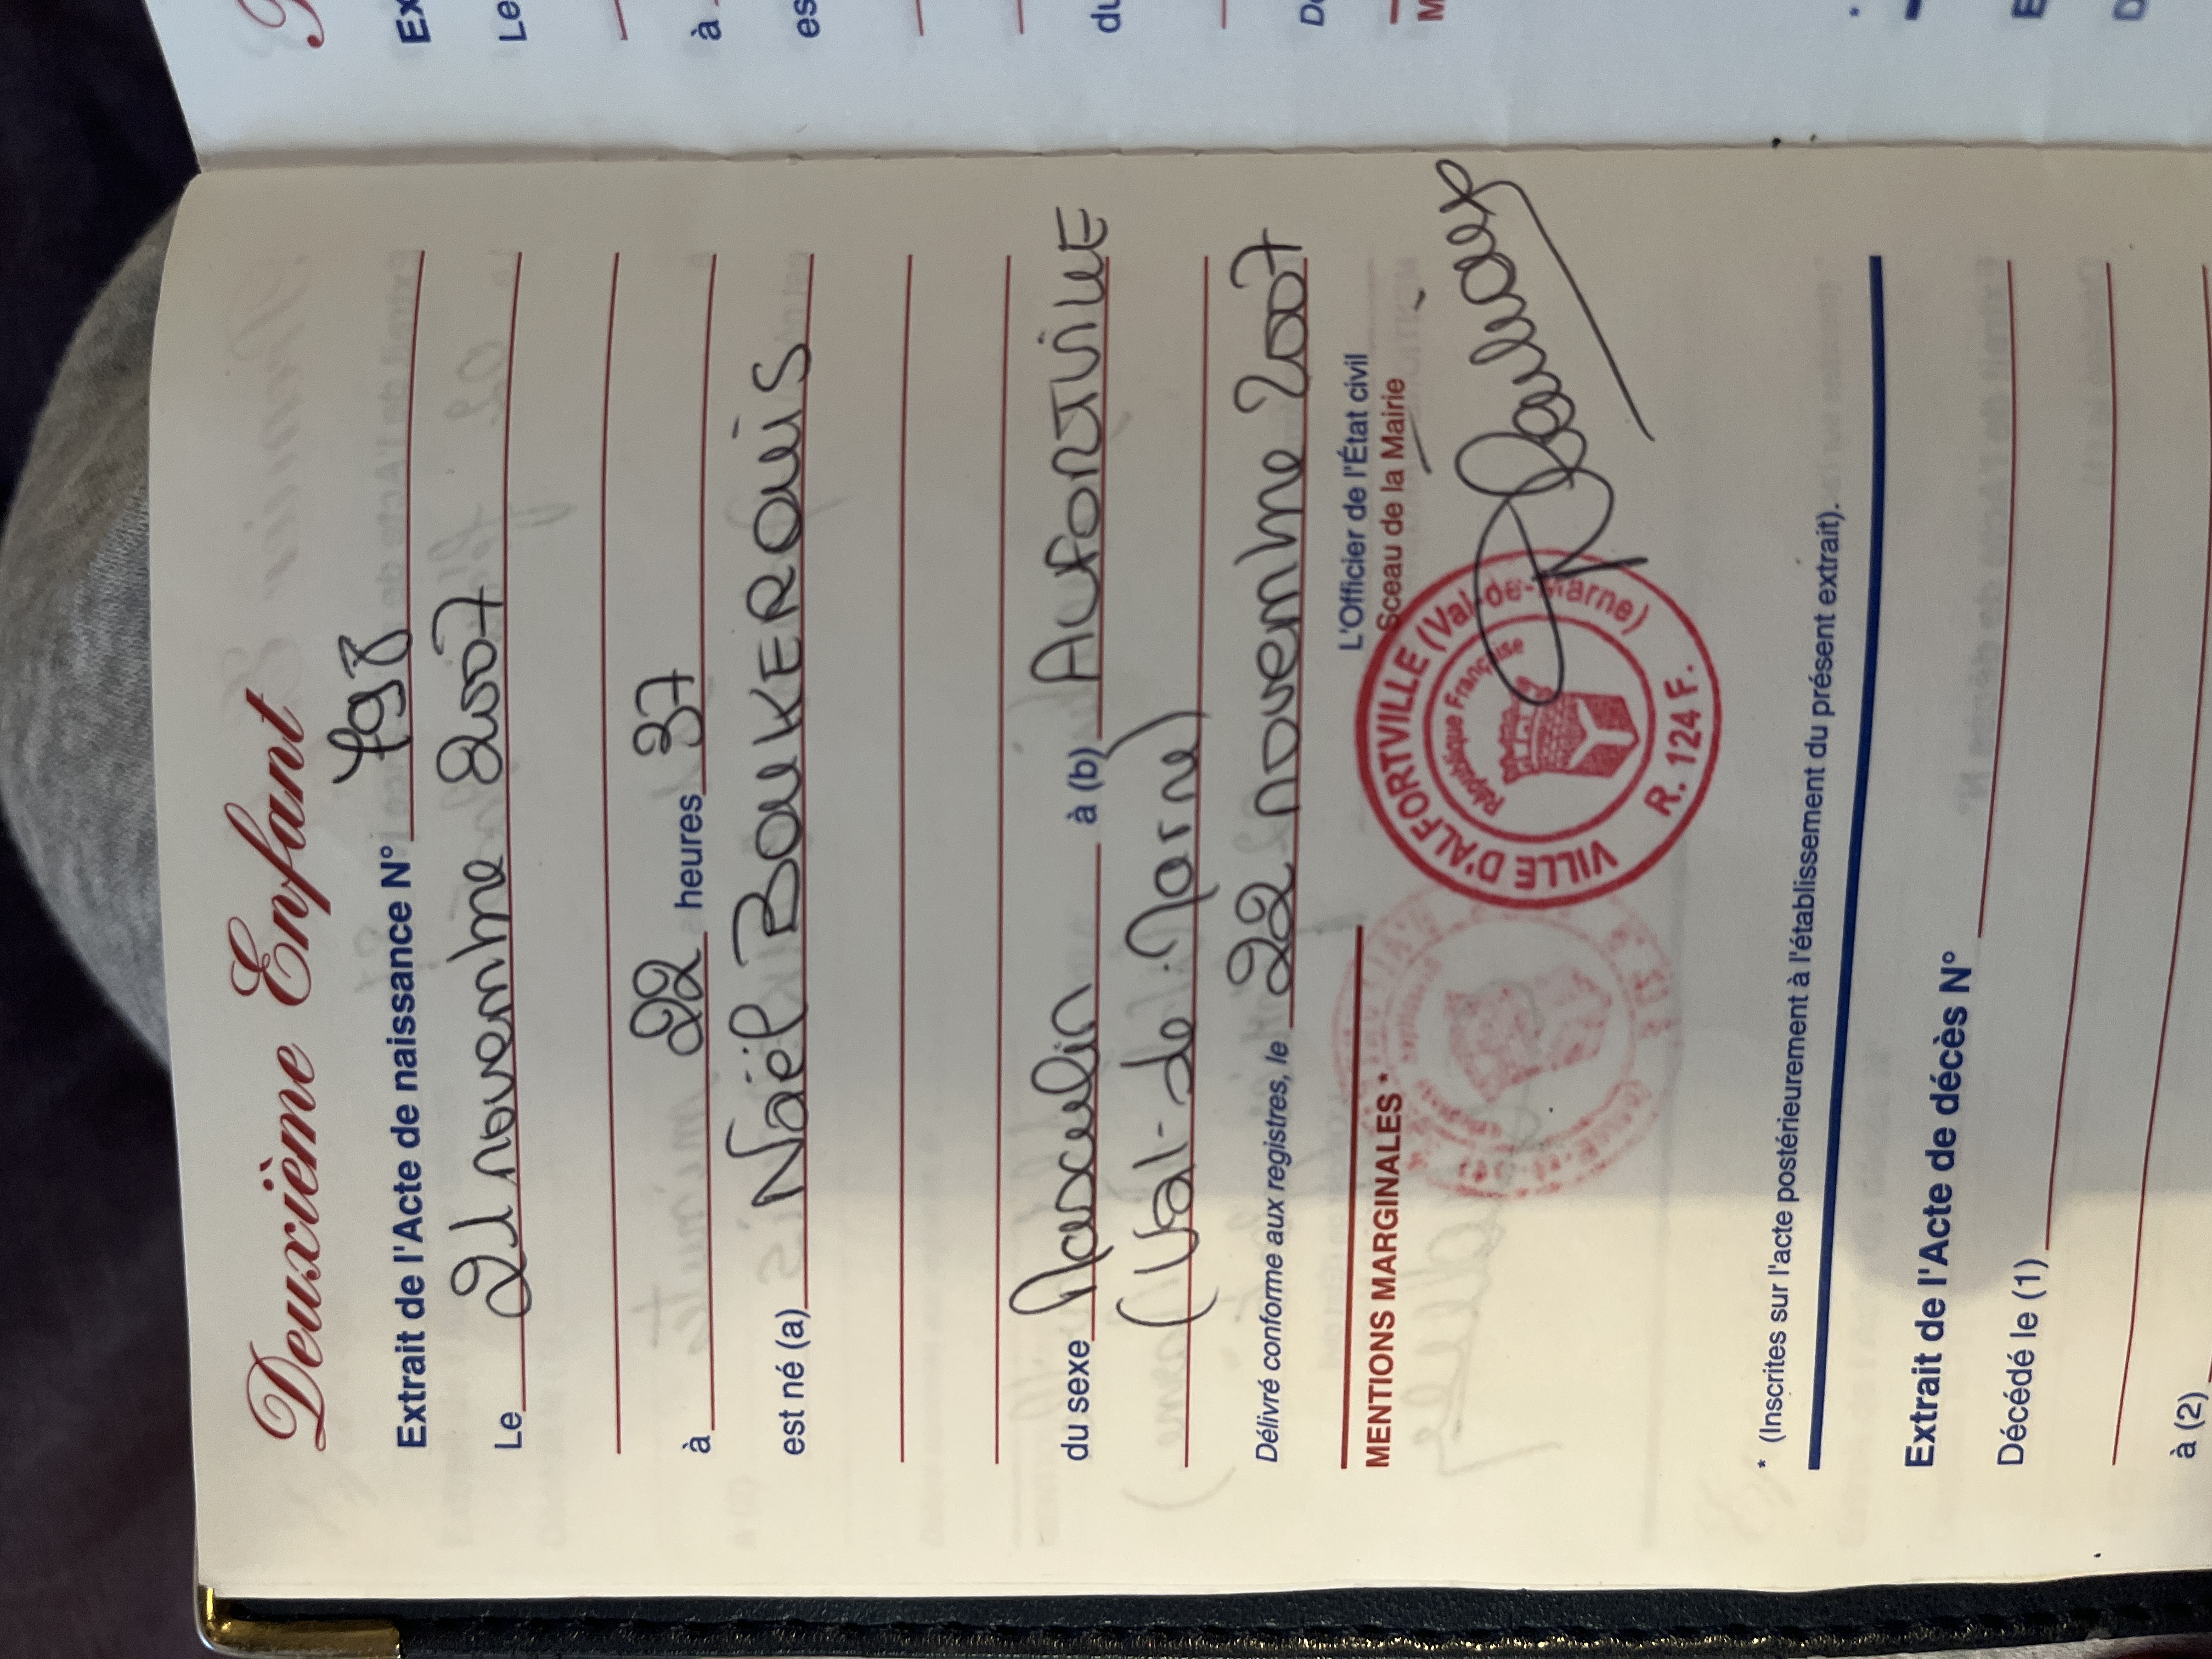 Deuxième Enfant
Extrait de l'Acte de naissance N° 198
Le 21 novembre 2007
à 22 heures 37
est né (a) Naël BOUKEROUIS
du sexe Masculin à (b) Alfortville
(Val-de-Marne)
Délivré conforme aux registres, le 22 novembre 2007
L'Officier de l'État civil
Sceau de la Mairie
MENTIONS MARGINALES *
VILLE D'ALFORTVILLE (Val-de-Marne)
République Française
R. 124 F.
* (Inscrites sur l'acte postérieurement à l'établissement du présent extrait).
Extrait de l'Acte de décès N°
Décédé le (1)
à (2)
Ex
Le
à
es
du